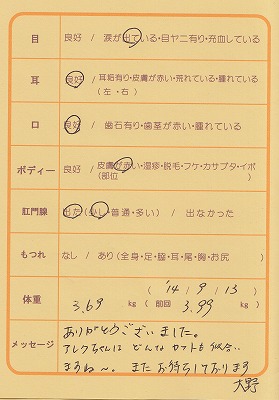 目 良好 / 涙が出ている・目ヤニ有り・充血している
耳 良好 / 耳垢有り・皮膚が赤い・荒れている・腫れている
(左・右)
口 良好 / 歯石有り・歯茎が赤い・腫れている
ボディー 良好 / 皮膚が赤い・湿疹・脱毛・フケ・カサブタ・イボ
(部位 )
肛門腺 出た (少し・普通・多い) / 出なかった
もつれ なし / あり(全身・足・脇・耳・尾・胸・お尻 )
( '14 / 9 / 13 )
体重 3.69 kg (前回 3.99 kg)
メッセージ ありがとうございました。
アレクちゃんは どんな カットも 似合い
ますね~。 また お待ちしております
大野